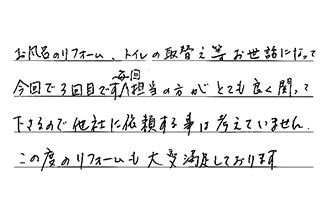 お風呂のリフォーム、トイレの取替え等お世話になって
今回で3回目です毎回担当の方がとても良く聞って
下さるので他社に依頼する事は考えていません.
この度のリフォームも大変満足しております